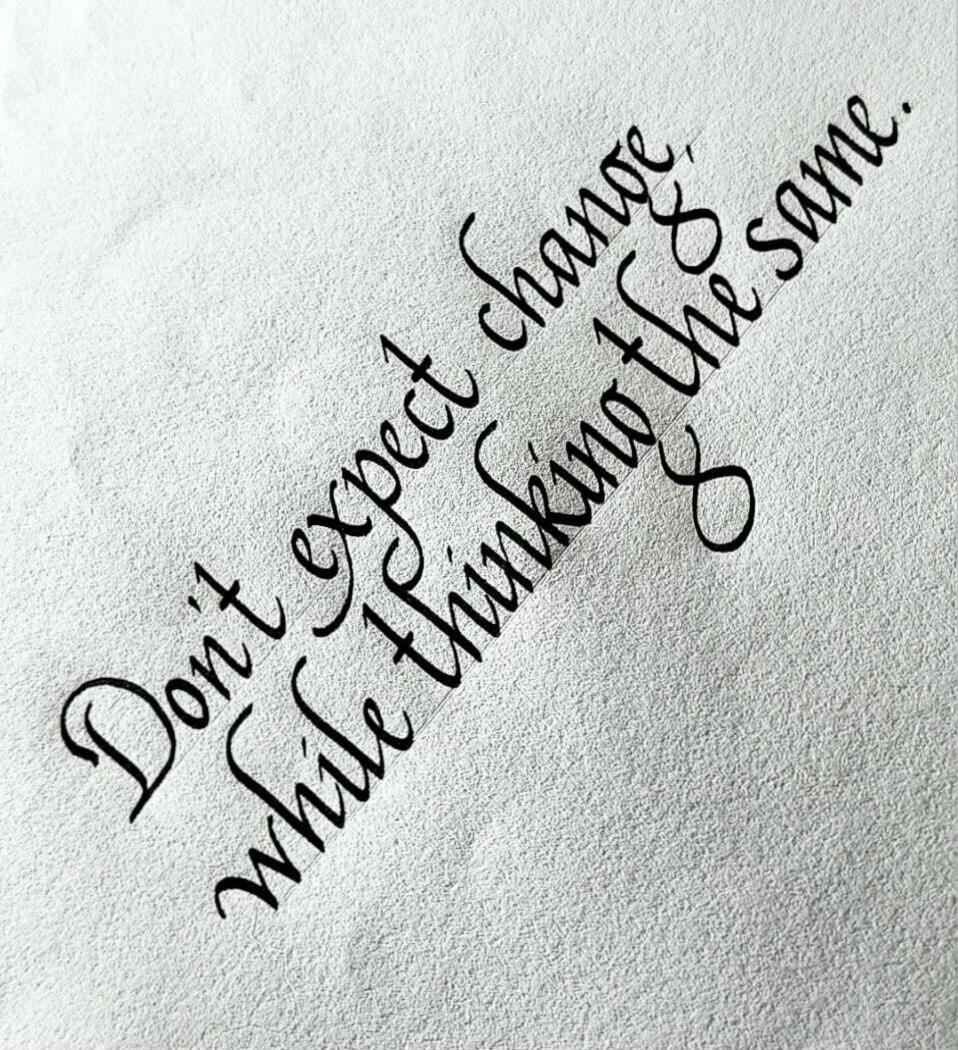 Don't expect change,
while thinking the same.